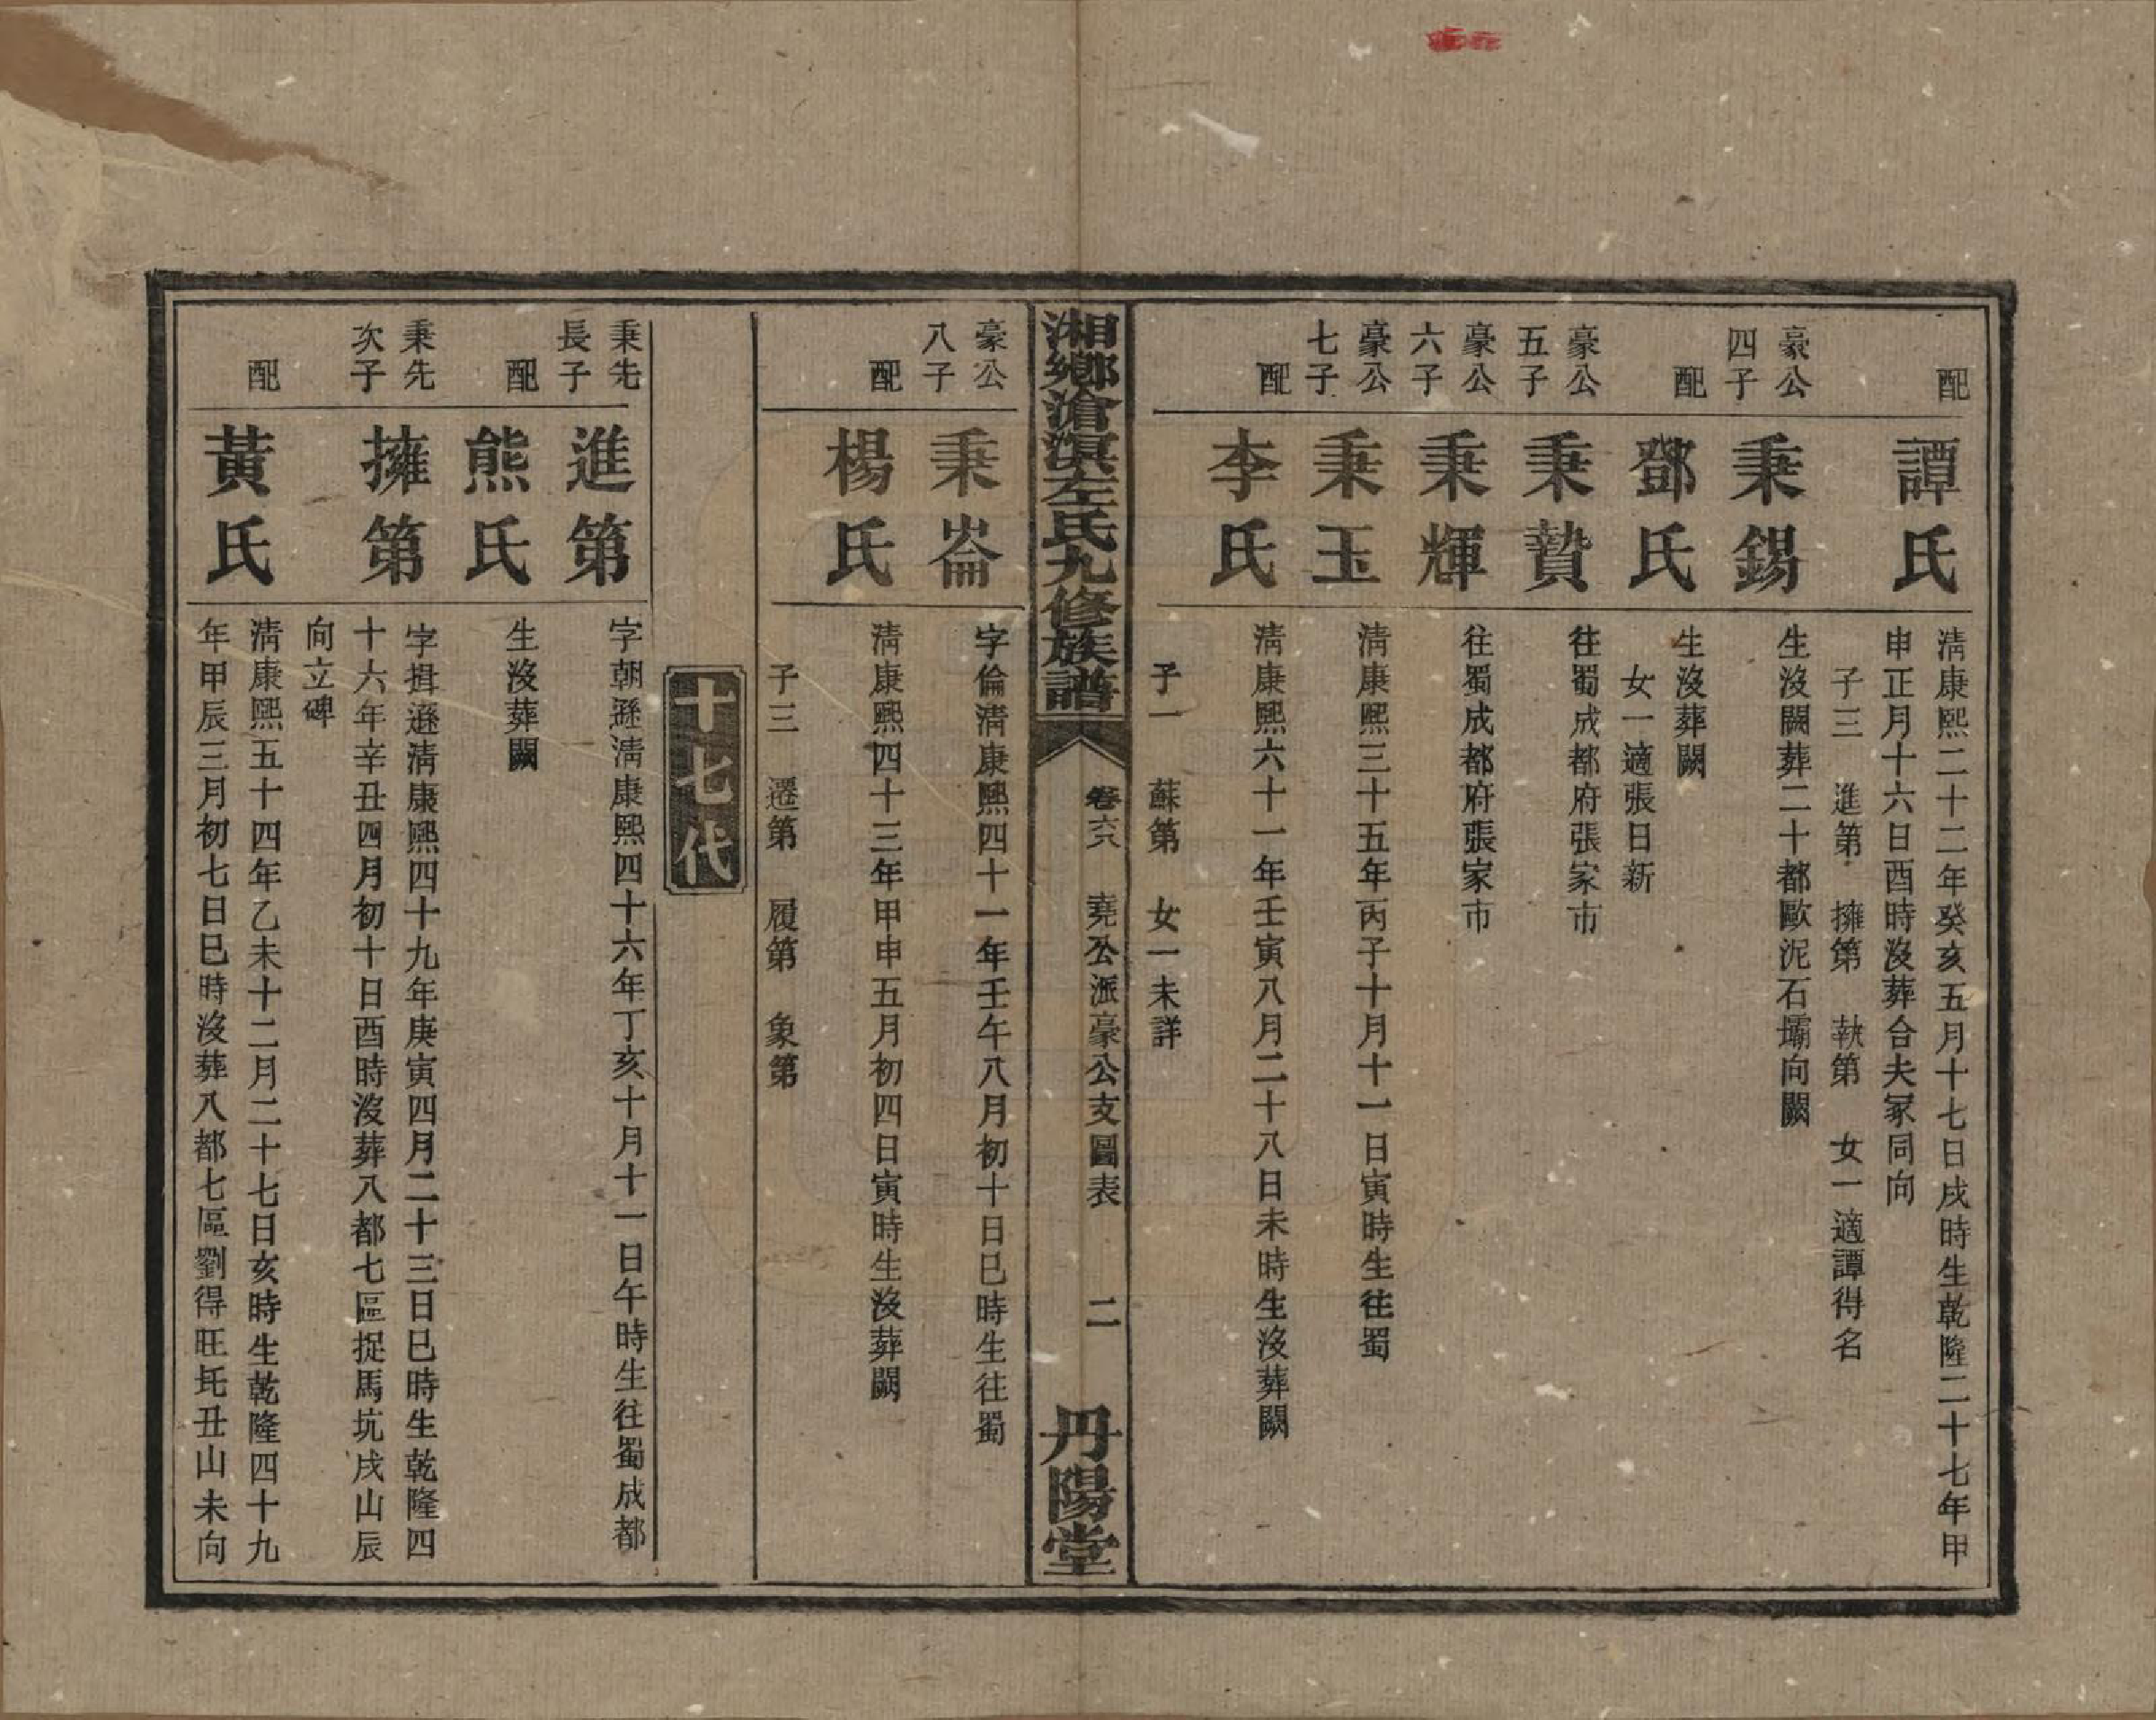 配
譚氏
淸康熙二十二年癸亥五月十七日戌時生乾隆二十七年甲
申正月十六日酉時沒葬合夫冢同向
子三　進第　擁第　執第　女一適譚得名
豪公
四子
秉錫
生沒闕葬二十都歐泥石壩向闕
配
鄧氏
生沒葬闕
女一適張日新
豪公
五子
秉贊
往蜀成都府張家市
豪公
六子
秉輝
往蜀成都府張家市
豪公
七子
秉玉
淸康熙三十五年丙子十月十一日寅時生往蜀
配
李氏
淸康熙六十一年壬寅八月二十八日未時生沒葬闕
子一　蘇第　女一未詳
湘鄉滄溟左氏九修族譜
卷六八　堯公派豪公支圖表　二
丹陽堂
豪公
八子
秉崙
字倫淸康熙四十一年壬午八月初十日巳時生往蜀
配
楊氏
淸康熙四十三年甲申五月初四日寅時生沒葬闕
子三　遷第　履第　象第
十七代
秉先
長子
進第
字朝遜淸康熙四十六年丁亥十月十一日午時生往蜀成都
配
熊氏
生沒葬闕
秉先
次子
擁第
字揖遜淸康熙四十九年庚寅四月二十三日巳時生乾隆四
十六年辛丑四月初十日酉時沒葬八都七區捉馬坑戌山辰
向立碑
配
黃氏
淸康熙五十四年乙未十二月二十七日亥時生乾隆四十九
年甲辰三月初七日巳時沒葬八都七區劉得旺坉丑山未向